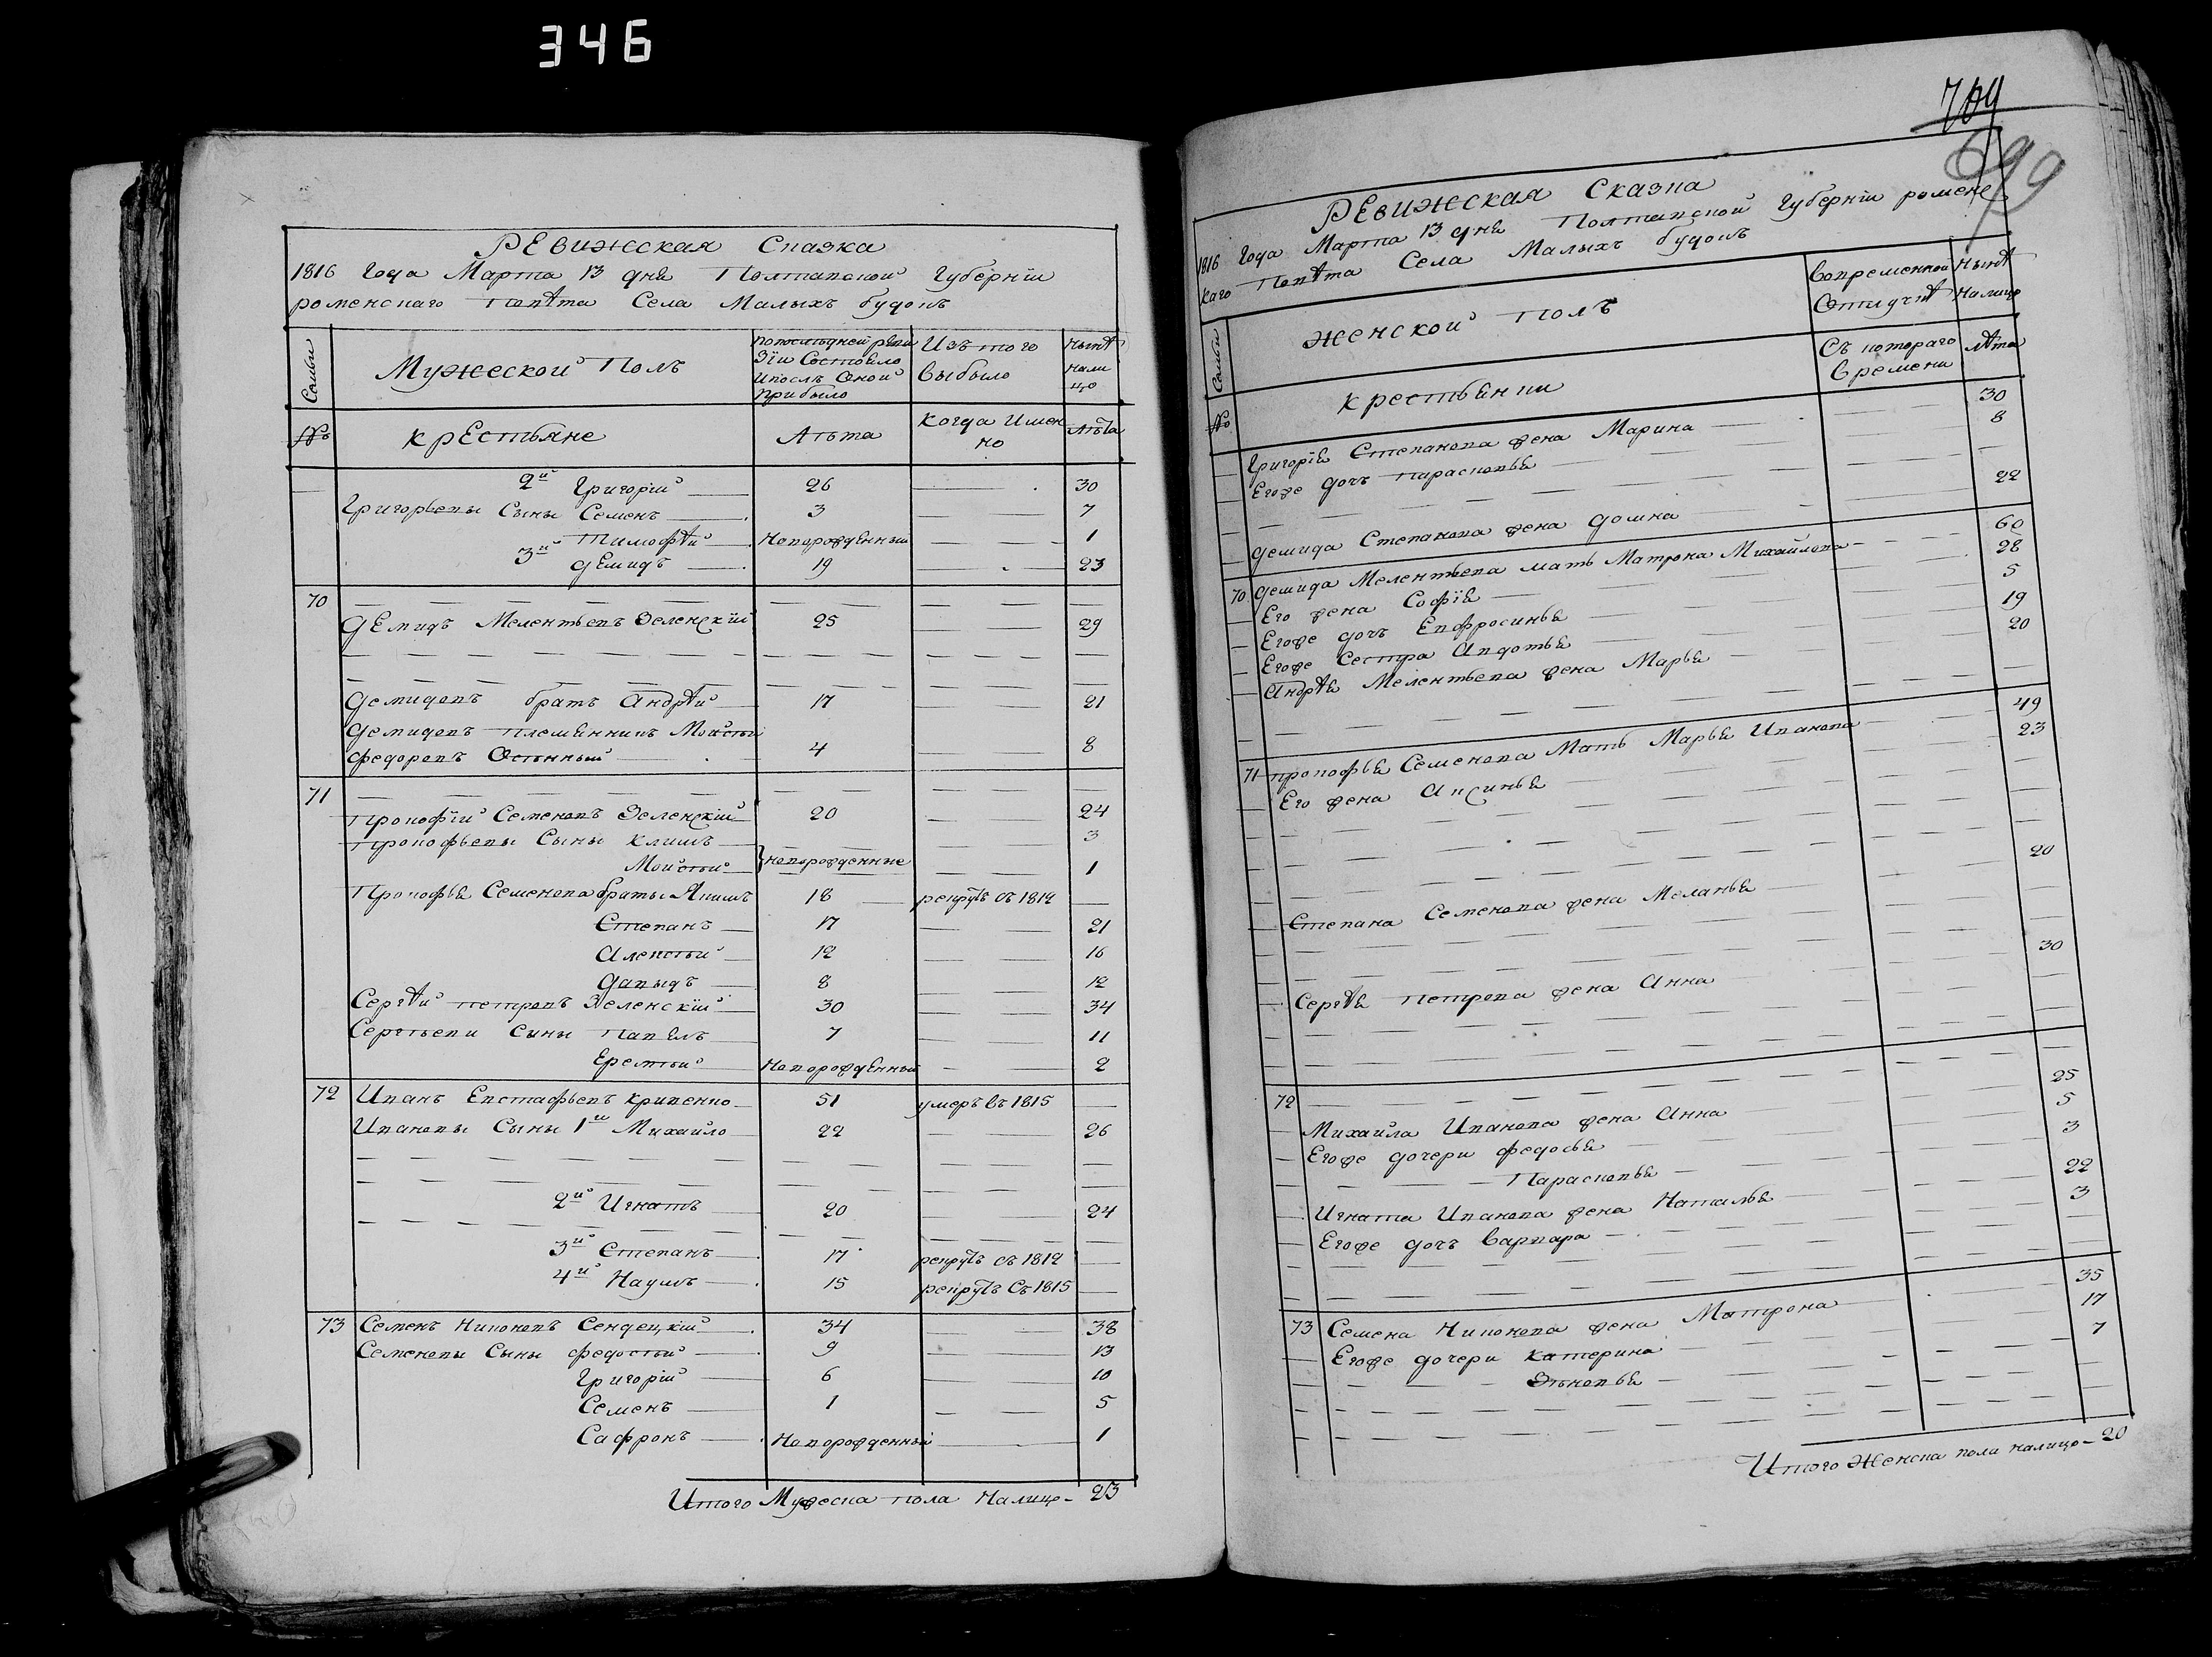 346
РЕвижская Сказка
1816 Года Марта 13 дня Полтавской Губернїи
роменскаго Повѣта Села Малыхъ будокъ
Семьи
Мужеской Полъ
Попослѣдней реви
зїи Состояло
Ипослѣ Оной
прибыло
Изъ того
выбыло
нынѣ
нали
цо
№
крЕстьяне
Лѣта
когда Имен
но
Лѣта
2й Григорїй 26 30
Григорьевы Сыны Семенъ 3 7
Тимофѣй Новорожденный 1
3й дЕмидъ 19 23
70
дЕмидъ Мелентьевъ Зеленскїй 25 29
Демидовъ братъ Андрѣй 17 21
Демидовъ племянникъ Мойсѣй
федоровъ Остнный 4 8
71
Прокофїй Семеновъ Зеленскїй 20 24
Прокофьевы Сыны климъ 3
Мойсѣй новорожденные 1
Прокофья Семенова братья Якимъ 18 рекрутъ съ 1812
Степанъ 17 21
Алексѣй 12 16
давыдъ 8 12
Сергѣй петровъ Зеленскїй 30 34
Сергѣеви сыны павелъ 7 11
Еремѣй Новорожденный 2
72 Иванъ Евстафьевъ кривенко 51 умеръ въ 1815
Ивановы Сыны 1й Михайло 22 26
2й Игнатъ 20 24
3й Степанъ 17 рекрутъ съ 1812
4й Наумъ 15 рекрутъ Съ 1815
73 Семенъ Никоновъ Сендецкїй 34 38
Семеновы Сыны федосѣй 9 13
Григорїй 6 10
Семенъ 1 5
Сафронъ Новорожденный 1
Итого Мужеска пола Налицо - 23
709
699
РЕвижская Сказка
1816 Года Марта 13 дня Полтавской Губернїи роменс
каго Повѣта Села Малыхъ будокъ
Семьи
женской полъ
вовременной
Отлучкѣ
нынѣ
Налицо
№
крестьянки
Съ котораго
времени
лѣта
Григорїя Степанова жена Марина 30
Егоже дочь парасковья 8
демида Степанова жена домна 22
70 демида Мелентьева мать Матрона Михайлова 60
Его жена Софїя 28
Егоже дочь Евфросинья 5
Егоже Сестра Авдотья 19
Андрѣя Мелентьева жена Марья 20
71 прокофья Семенова Мать Марья Иванова 49
Его жена Аксинья 23
Степана Семенова жена Меланья 20
Сергѣя петрова жена Анна 30
72
Михайла Иванова жена Анна 25
Егоже дочери федосья 5
Парасковья 3
Игната Иванова жена Наталья 22
Егоже дочь варвара 3
73 Семена Никонова жена Матрона 35
Егоже дочери катерина 17
Зѣновья 7
Итого Женска пола налицо - 20